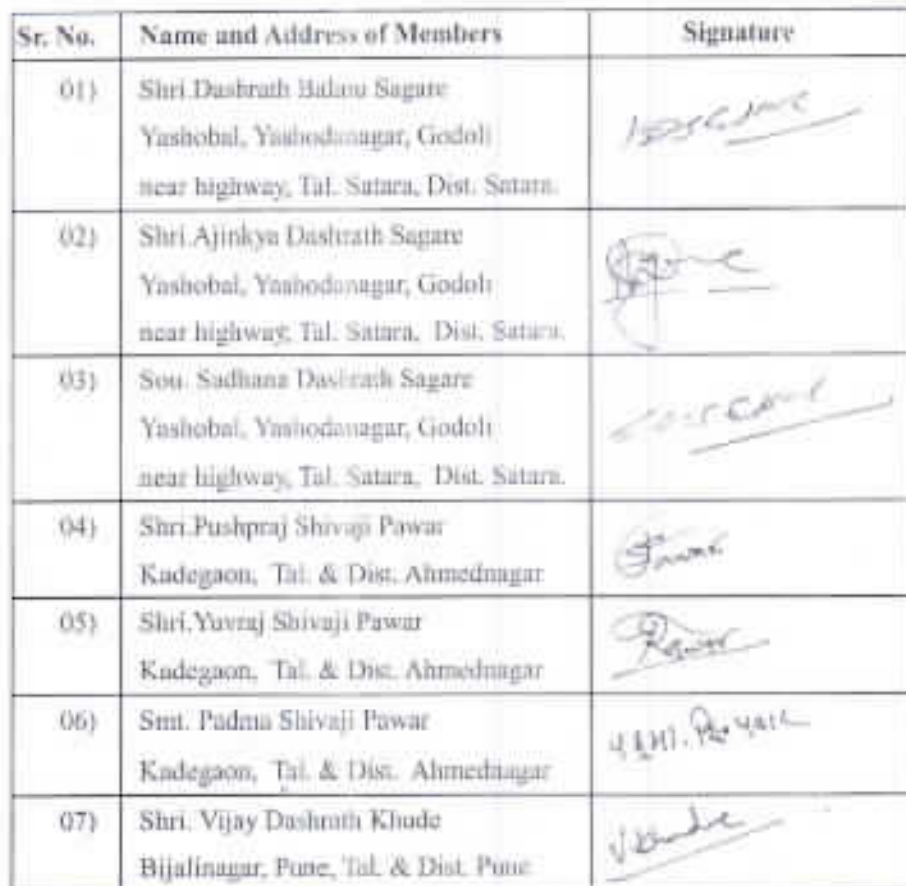 Sr. No. Name and Address of Members Signature
01) Shri.Dashrath Balau Sagare
Yashobal, Yashodanagar, Godoli
near highway, Tal. Satara, Dist. Satara.
02) Shri.Ajinkya Dashrath Sagare
Yashobal, Yashodanagar, Godoli
near highway, Tal. Satara, Dist. Satara.
03) Sou. Sadhana Dashrath Sagare
Yashobal, Yashodanagar, Godoli
near highway, Tal. Satara, Dist. Satara.
04) Shri.Pushpraj Shivaji Pawar Pawar
Kadegaon, Tal. & Dist. Ahmednagar
05) Shri.Yuvraj Shivaji Pawar Pawar
Kadegaon, Tal. & Dist. Ahmednagar
06) Smt. Padma Shivaji Pawar
Kadegaon, Tal. & Dist. Ahmednagar
07) Shri. Vijay Dashrath Khude
Bijalinagar, Pune, Tal. & Dist. Pune